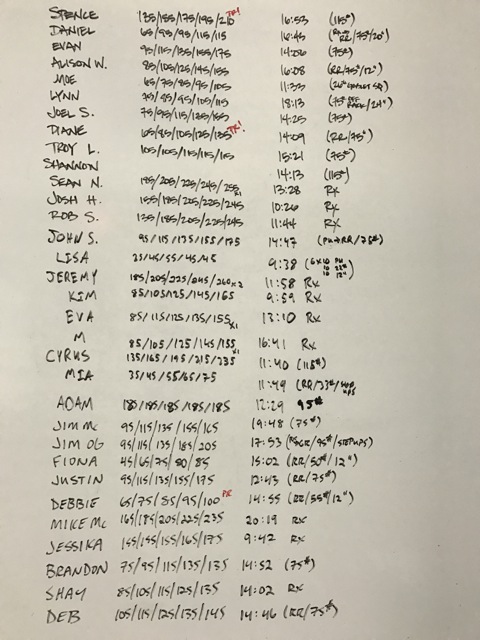 SPENCE 135/155/175/195/210 PR! 16:53 (115#)
DANIEL 65/95/95/115/115 16:45 RR/75#/20")
EVAN 95/115/135/155/175 14:06 (75#)
ALISON W. 85/105/125/145/155 16:08 (RR/75#/12")
MOE 65/75/85/95/105 11:33
LYNN 75/85/95/105/115 18:13 (75#
JOEL S. 75/95/115/125/135 14:25 (75#)
DIANE 65/85/105/125/135 PR! 14:09 (RR/75#)
TROY L. 105/105/115/115/115 15:21 (75#)
SHANNON 14:13 (115#)
SEAN N. 185/205/225/245/255 x1 13:28 Rx
JOSH H. 155/185/205/225/245 10:26 Rx
ROB S. 135/185/205/225/245 11:44 Rx
JOHN S. 95/115/135/155/175 14:47 (PU→RR/75#)
LISA 35/45/55/45/45 9:38
JEREMY 185/205/225/245/260x2 11:58 Rx
KIM 85/105/125/145/165 9:59 Rx
EVA 85/115/125/135/155x1 13:10 Rx
M 85/105/125/145/155 x1 16:41 Rx
CYRUS 135/165/195/215/235 11:40 (115#)
MIA 35/45/55/65/75 11:49
ADAM 185/185/185/185/185 12:29 95#
JIM MC 95/115/135/155/165 19:48 (75#)
JIM OG 95/115/135/185/205 17:53 /75#/STEPUPS)
FIONA 45/65/75/80/85 15:02 (RR/50#/12")
JUSTIN 95/115/135/155/175 12:43 (RR/75#)
DEBBIE 65/75/85/95/100 PR 14:55 (RR/55#/12")
MIKE MC 165/185/205/225/235 20:19 Rx
JESSIKA 155/155/155/165/175 9:42 Rx
BRANDON 75/95/115/135/135 14:52 (75#)
SHAY 85/105/115/125/135 14:02 Rx
DEB 105/115/125/135/145 14:46 (RR/75#)